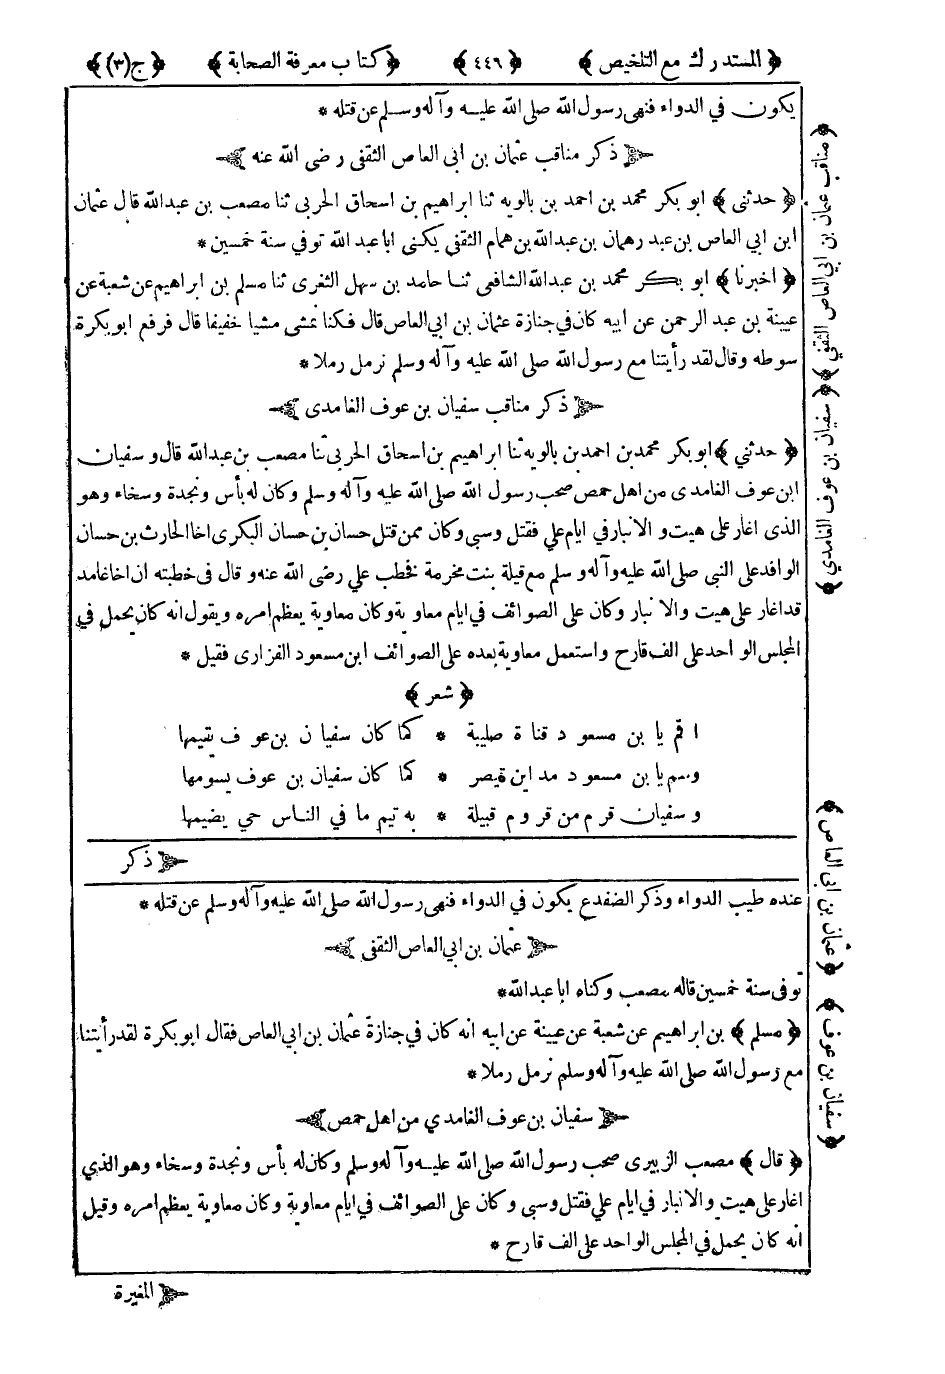 ﴿ المستدرك مع التلخيص ﴾ ﴿ ٤٤٦ ﴾ ﴿ كتاب معرفة الصحابة ﴾ ﴿ ج(٣) ﴾
يكون في الدواء فنهى رسول الله صلى الله عليه وآله وسلم عن قتله *
ذكر مناقب عثمان بن ابى العاص الثقفى رضى الله عنه
﴿ حدثنى ﴾ ابو بكر محمد بن احمد بن بالويه ثنا ابراهيم بن اسحاق الحربى ثنا مصعب بن عبدالله قال عثمان
ابن ابي العاص بن عبد رهمان بن عبدالله بن همام الثقفي يكنى ابا عبد الله توفي سنة خمسين *
﴿ اخبرنا ﴾ ابو بكر محمد بن عبدالله الشافعى ثنا حامد بن سهل الثغرى ثنا مسلم بن ابراهيم عن شعبة عن
عيينة بن عبد الرحمن عن ابيه كان في جنازة عثمان بن ابي العاص قال فكنا نمشى مشيا خفيفا قال فرفع ابو بكرة
سوطه وقال لقد رأيتنا مع رسول الله صلى الله عليه وآله وسلم نرمل رملا *
ذكر مناقب سفيان بن عوف الغامدى
﴿ حدثني ﴾ ابو بكر محمد بن احمد بن بالويه ثنا ابراهيم بن اسحاق الحربي ثنا مصعب بن عبدالله قال وسفيان
ابن عوف الغامدى من اهل حمص صحب رسول الله صلى الله عليه وآله وسلم وكان له بأس ونجدة وسخاء وهو
الذى اغار على هيت والانبار في ايام علي فقتل وسبى وكان ممن قتل حسان بن حسان البكرى اخا الحارث بن حسان
الوافد على النبى صلى الله عليه وآله وسلم مع قيلة بنت مخرمة فخطب علي رضى الله عنه وقال فى خطبته ان اخا غامد
قد اغار على هيت والانبار وكان على الصوائف في ايام معاوية وكان معاوية يعظم امره ويقول انه كان يحمل في
المجلس الواحد على الف قارح واستعمل معاوية بعده على الصوائف ابن مسعود الفزارى فقيل *
﴿ شعر ﴾
اقم يا بن مسعود قناة صليبة * كما كان سفيان بن عوف يقيمها
وسم يا بن مسعود مداين قيصر * كما كان سفيان بن عوف يسومها
وسفيان قرم من قروم قبيلة * به تيم ما في الناس حي يضيمها
ذكر
عنده طيب الدواء وذكر الضفدع يكون في الدواء فنهى رسول الله صلى الله عليه وآله وسلم عن قتله *
عثمان بن ابي العاص الثقفى
توفى سنة خمسين قاله مصعب وكناه ابا عبدالله *
﴿ مسلم ﴾ بن ابراهيم عن شعبة عن عيينة عن ابيه انه كان في جنازة عثمان بن ابي العاص فقال ابو بكرة لقد رأيتنا
مع رسول الله صلى الله عليه وآله وسلم نرمل رملا *
سفيان بن عوف الغامدي من اهل حمص
﴿ قال ﴾ مصعب الزبيرى صحب رسول الله صلى الله عليه وآله وسلم وكان له بأس ونجدة وسخاء وهو الذي
اغار على هيت والانبار في ايام علي فقتل وسبى وكان على الصوائف في ايام معاوية وكان معاوية يعظم امره وقيل
انه كان يحمل في المجلس الواحد على الف قارح *
المغيرة
﴿ مناقب عثمان بن ابي العاص الثقفي ﴾ ﴿ سفيان بن عوف الغامدي ﴾
﴿ عثمان بن ابى العاص ﴾ ﴿ سفيان بن عوف ﴾